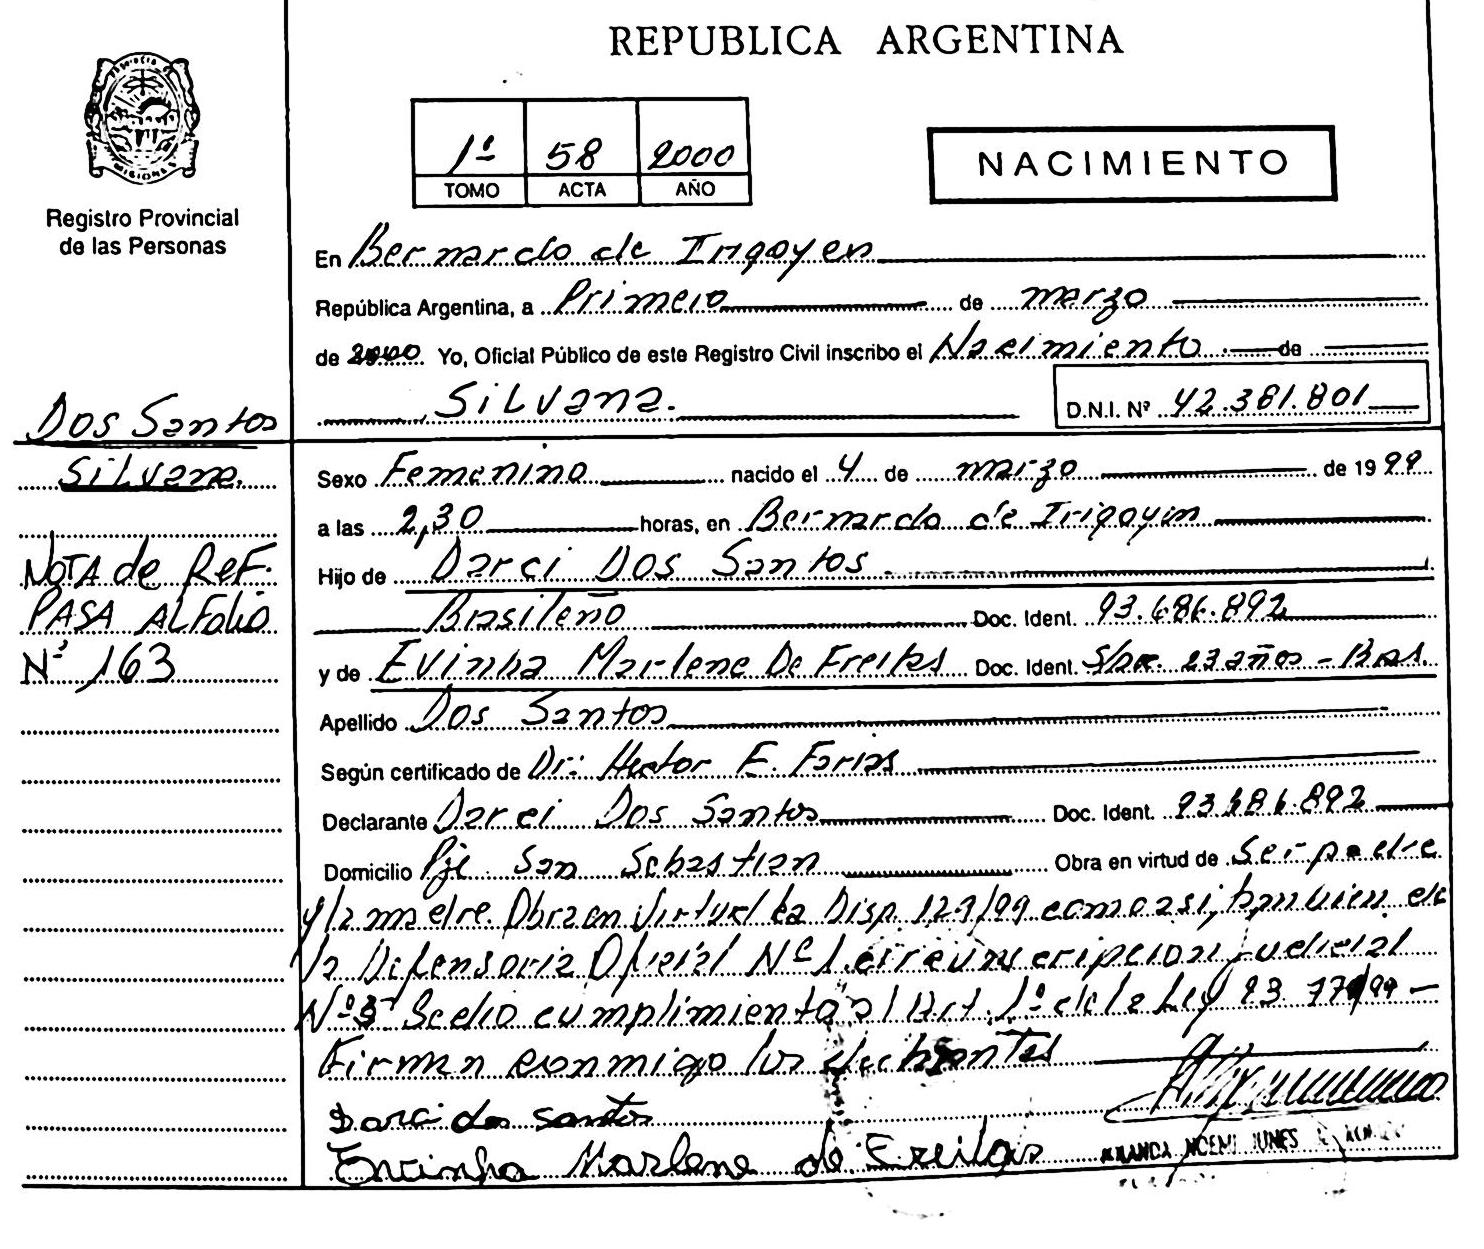 REPUBLICA ARGENTINA
1º 58 2000
TOMO ACTA AÑO
NACIMIENTO
MISIONES
Registro Provincial
de las Personas
En Bernardo de Irigoyen
República Argentina, a Primero de marzo
de 2000 Yo, Oficial Público de este Registro Civil inscribo el Nacimiento de
Silvana. D.N.I. Nº 42.381.801
Dos Santos
Silvana.
Nota de Ref.
PASA AL Folio
Nº 163
Sexo Femenino nacido el 4 de marzo de 1999
a las 2,30 horas, en Bernardo de Irigoyen
Hijo de Darci Dos Santos
Brasileño Doc. Ident. 93.686.892
y de Evinha Marlene De Freitas Doc. Ident. 23 años - Bras.
Apellido Dos Santos
Según certificado de Dr: Hector E. Farias
Declarante Darci Dos Santos Doc. Ident. 93.686.892
Domicilio Pje San Sebastian Obra en virtud de Ser padre
y la madre. Obra en Virtud la Disp. 129/99 como asi, tambien de
la Defensoria Oficial Nº 1 circunscripcion Judicial
Nº 3 Se dio cumplimiento al Art. 1º de la Ley
Firman conmigo los
Darci dos santos
Evinha Marlene de Freitas
NOEMI